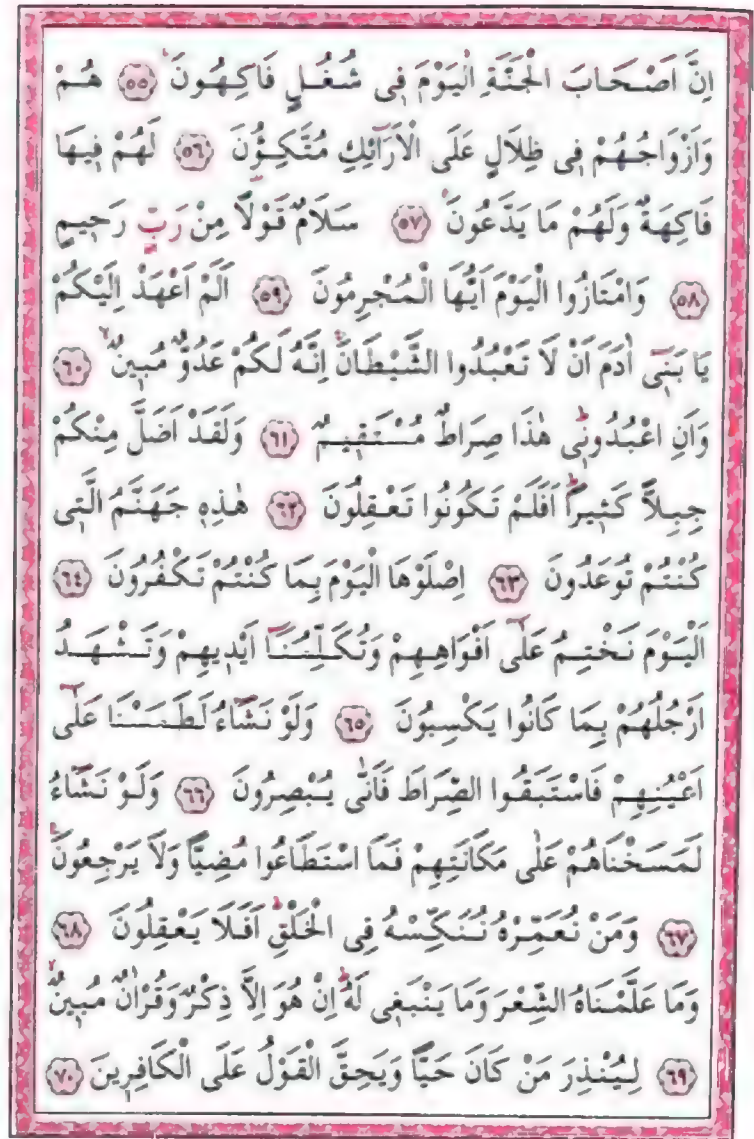 اِنَّ اَصْحَابَ الْجَنَّةِ الْيَوْمَ ف۪ى شُغُلٍ فَاكِهُونَۚ ﴿٥٥﴾ هُمْ
وَاَزْوَاجُهُمْ ف۪ى ظِلَالٍ عَلَى الْاَرَٓائِكِ مُتَّكِؤُ۫نَ ﴿٥٦﴾ لَهُمْ ف۪يهَا
فَاكِهَةٌ وَلَهُمْ مَا يَدَّعُونَۚ ﴿٥٧﴾ سَلَامٌ۠ قَوْلًا مِنْ رَبٍّ رَح۪يمٍ
﴿٥٨﴾ وَامْتَازُوا الْيَوْمَ اَيُّهَا الْمُجْرِمُونَ ﴿٥٩﴾ اَلَمْ اَعْهَدْ اِلَيْكُمْ
يَا بَن۪ٓى اٰدَمَ اَنْ لَا تَعْبُدُوا الشَّيْطَانَۚ اِنَّهُ لَكُمْ عَدُوٌّ مُب۪ينٌۙ ﴿٦٠﴾
وَاَنِ اعْبُدُون۪ىۜ هٰذَا صِرَاطٌ مُسْتَق۪يمٌ ﴿٦١﴾ وَلَقَدْ اَضَلَّ مِنْكُمْ
جِبِلاًّ كَث۪يراًۜ اَفَلَمْ تَكُونُوا تَعْقِلُونَ ﴿٦٢﴾ هٰذِه۪ جَهَنَّمُ الَّت۪ى
كُنْتُمْ تُوعَدُونَ ﴿٦٣﴾ اِصْلَوْهَا الْيَوْمَ بِمَا كُنْتُمْ تَكْفُرُونَ ﴿٦٤﴾
اَلْيَوْمَ نَخْتِمُ عَلٰٓى اَفْوَاهِهِمْ وَتُكَلِّمُنَٓا اَيْد۪يهِمْ وَتَشْهَدُ
اَرْجُلُهُمْ بِمَا كَانُوا يَكْسِبُونَ ﴿٦٥﴾ وَلَوْ نَشَٓاءُ لَطَمَسْنَا عَلٰٓى
اَعْيُنِهِمْ فَاسْتَبَقُوا الصِّرَاطَ فَاَنّٰى يُبْصِرُونَ ﴿٦٦﴾ وَلَوْ نَشَٓاءُ
لَمَسَخْنَاهُمْ عَلٰى مَكَانَتِهِمْ فَمَا اسْتَطَاعُوا مُضِيًّا وَلَا يَرْجِعُونَ۟
﴿٦٧﴾ وَمَنْ نُعَمِّرْهُ نُنَكِّسْهُ فِى الْخَلْقِۜ اَفَلَا يَعْقِلُونَ ﴿٦٨﴾
وَمَا عَلَّمْنَاهُ الشِّعْرَ وَمَا يَنْبَغ۪ى لَهُۜ اِنْ هُوَ اِلَّا ذِكْرٌ وَقُرْاٰنٌ مُب۪ينٌۙ
﴿٦٩﴾ لِيُنْذِرَ مَنْ كَانَ حَيًّا وَيَحِقَّ الْقَوْلُ عَلَى الْكَافِر۪ينَ ﴿٧٠﴾